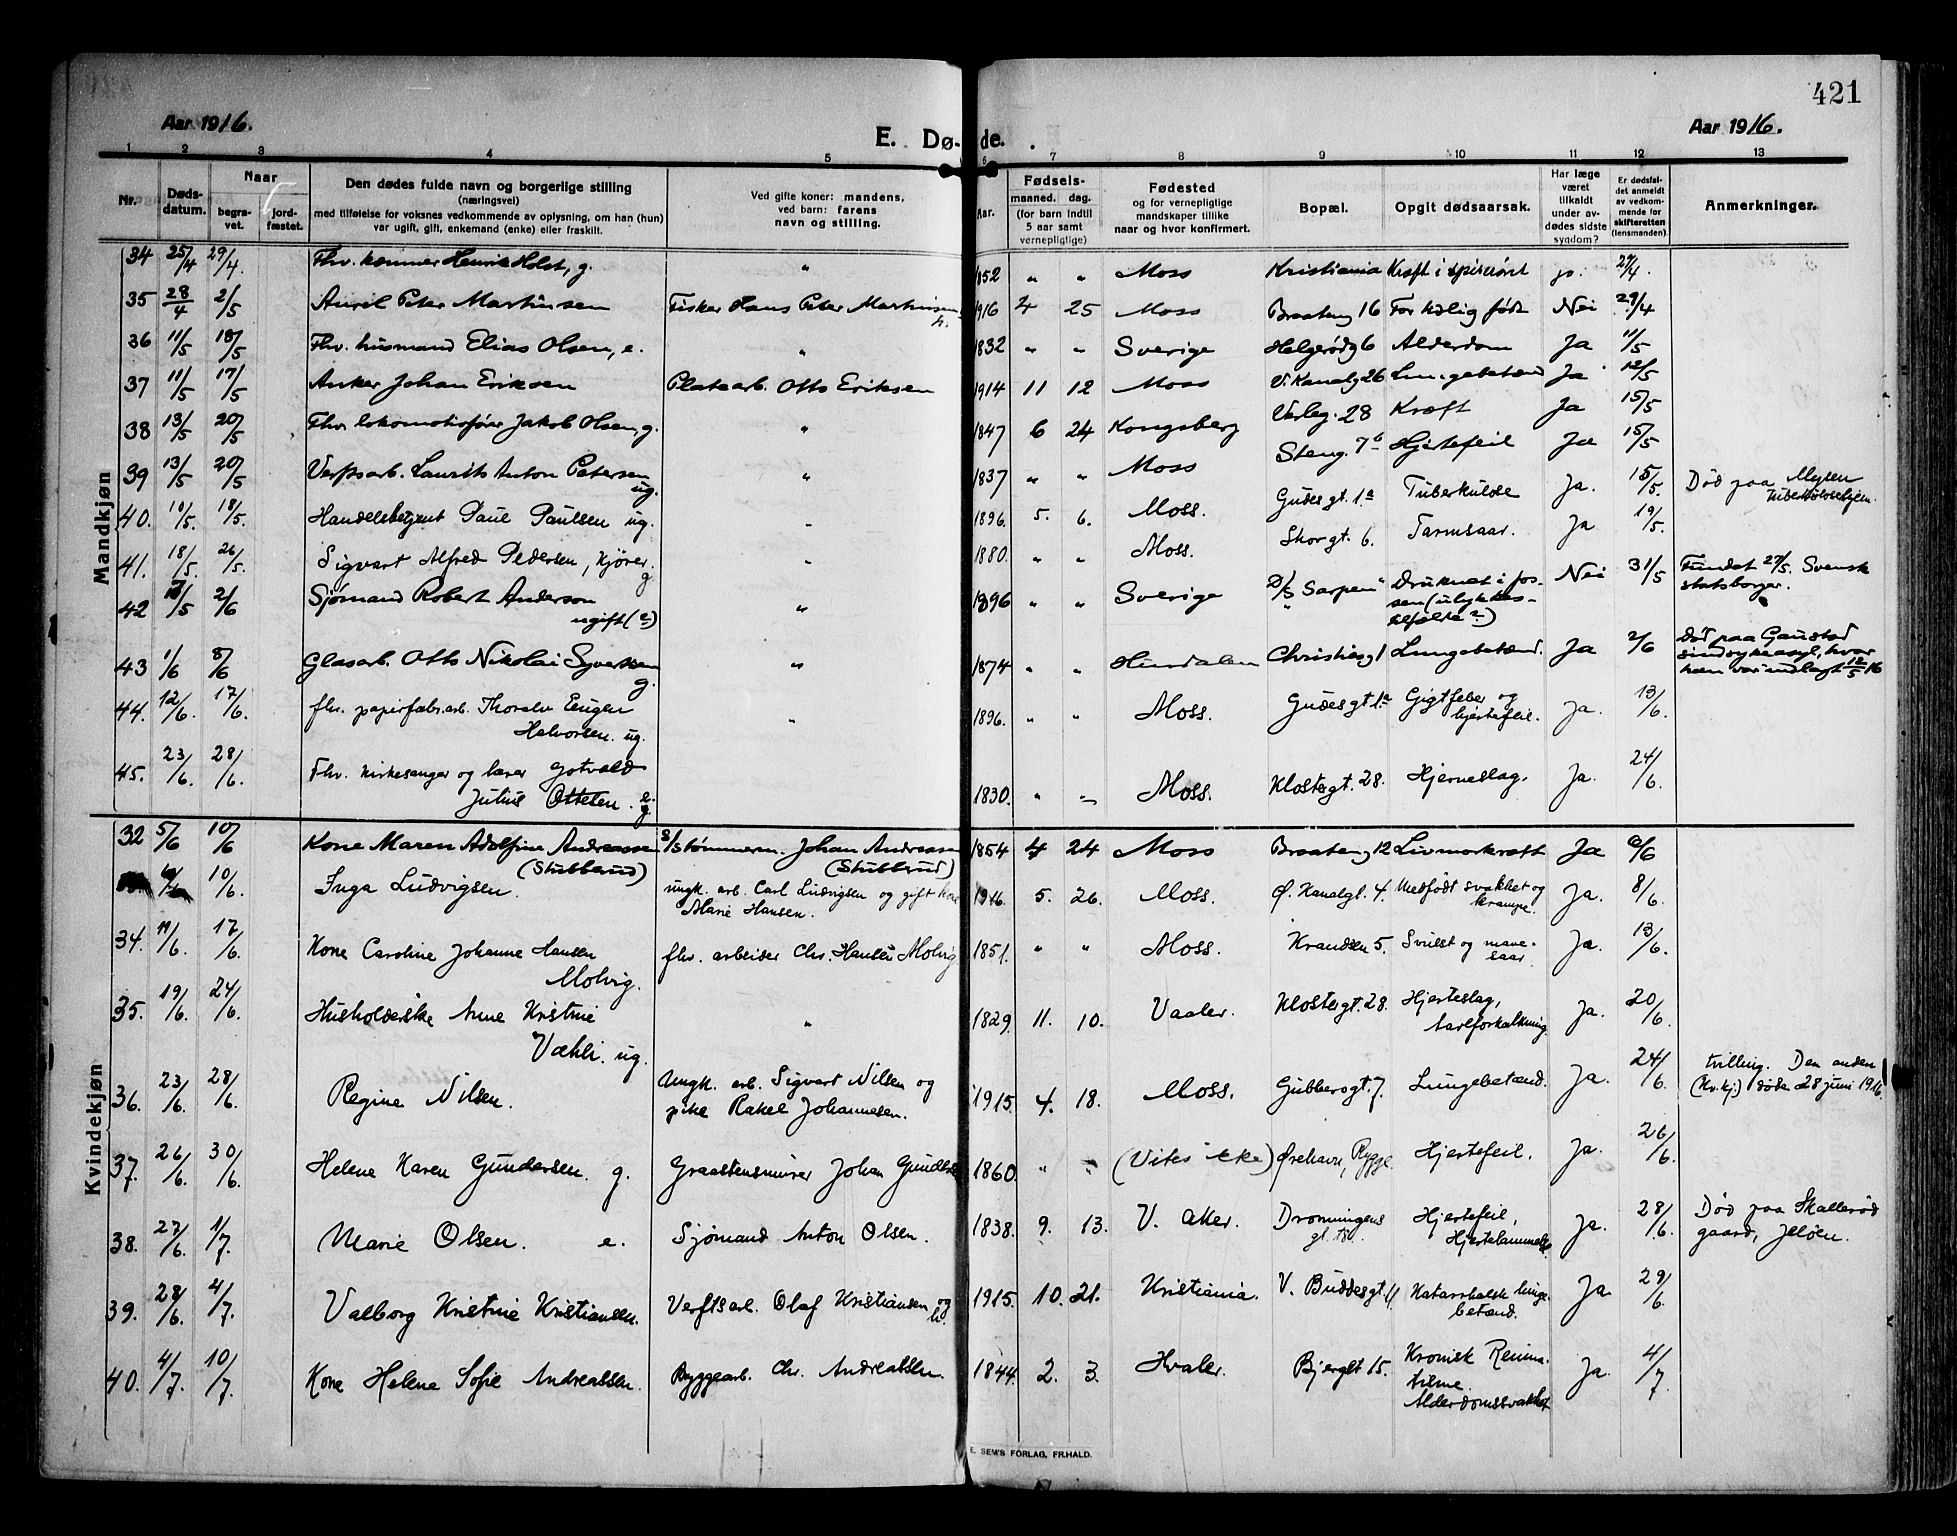 421
Aar 1916.
E. Dø-
de.
Aar 1916.
1 2 3 4 5 6 7 8 9 10 11 12 13
Nr.
Døds-
datum.
Naar
begra-
vet.
jord-
fæstet.
Den dødes fulde navn og borgerlige stilling
(næringsvei)
med tilføielse for voksnes vedkommende av oplysning, om han (hun)
var ugift, gift, enkemand (enke) eller fraskilt.
Ved gifte koner: mandens,
ved barn: farens
navn og stilling.
Aar.
Fødsels-
maaned. dag.
(for barn indtil
5 aar samt
vernepligtige)
Fødested
og for vernepligtige
mandskaper tillike
naar og hvor konfirmert.
Bopæl.
Opgit dødsaarsak.
Har læge
været
tilkaldt
under av-
dødes sidste
sygdom?
Er dødsfal-
det anmeldt
av vedkom-
mende for
skifteretten
(lensmanden).
Anmerkninger.
Mandkjøn
34 25/4 29/4 Fhv. kæmner Henrik Holst, g. " 1852 " " Moss Kristiania Kræft i spiserøret ja. 27/4
35 28/4 2/5 Aurel Peter Martinsen Fisker Hans Peter Martinsen 1916 4 25 Moss Braateng 16 For tidlig født Nei 29/4
36 11/5 18/5 Fhv. husmand Elias Olsen, e. " 1832 " " Sverige Helgerødg 6 Alderdom Ja 11/5
37 11/5 17/5 Anker Johan Eriksen Platearb. Otto Eriksen 1914 11 12 Moss V. Kanalg 26 Lungebetænd Ja 12/5
38 13/5 20/5 Fhv. lokomotivfører Jakob Olsen, g. " 1847 6 24 Kongsberg Varleg. 28 Kræft Ja 15/5
39 13/5 20/5 Verftsarb. Laurits Anton Petersen
ug. " 1837 " " Moss Steng. 7 b Hjertefeil Ja 15/5
40. 10/5. 18/5. Handelsbetjent Paul Paulsen ug. " 1896. 5. 6. Moss. Gudes gt. 1a Tuberkulose Ja. 15/5. Død paa Mysen
tuberkulosehjem.
41. 18/5. 26/5. Sigvart Alfred Pedersen, kjører.
g " 1880. " " Moss. Skorgt. 6. Tarmsaar. Ja 19/5.
42 /5 2/6 Sjømand Robert Anderson
ugift (?) " 1896 " " Sverige D/S "Sarpen" Druknet i fos-
sen (ulykkes-
tilfælde?) Nei 31/5 Fundet 27/5. Svensk
statsborger.
43 1/6 8/6 Glasarb. Otto Nikolai Syversen
g. " 1874 " " Christiesg 1 Lungebetænd. Ja 2/6 Død paa Gaustad
sindsykeasyl, hvor
han var indlagt 12/5 16
44. 12/6. 17/6. fhv. papirfabr.arb. Thoralv Eugen
Halvorsen. ug. " 1896. " " Moss. Gudesgt. 1a Gigtfeber og
hjertefeil. Ja. 13/6.
45. 23/6. 28/6. Fhv. kirkesanger og lærer Gotvald
Julius Ottesen. e. 1830. " " Moss. Klostergt. 28. Hjerneslag. Ja. 24/6.
Kvindekjøn
32 5/6 10/6 Kone Maren Adolfine Andreassen
(Stubberud) s/Tømmerm. Johan Andreassen
(Stubberud) 1854 4 24 Moss Braateng 12 Livmorkræft Ja 6/6
10/6. Inga Ludvigsen. ungk. arb. Carl Ludvigsen og gift kone
Marie Hansen. 1916. 5. 26. Moss. Ø. Kanalgt. 4. Medfødt svakhet og
krampe. Ja. 8/6.
34. 11/6. 17/6. Kone Caroline Johanne Hansen
Molvig. fhv. arbeider Chr. Hansen Molvig. 1851. " " Moss. Kransen 5. Svulst og mave-
saar. Ja. 13/6.
35. 19/6. 24/6. Husholderske Anne Kristine
Væhli. ug. " 1829. 11. 10. Vaaler. Klostergt. 28. Hjerteslag,
Aarforkalkning. Ja. 20/6.
36. 23/6. 28/6. Regine Nilsen. Ungk. arb. Sigvart Nilsen og
pike Rakel Johannesen. 1915. 4. 18. Moss. Gubbersgt 7. Lungebetænd. Ja. 24/6. tvilling. Den anden
(kv.kj) døde 28 juni 1916.
37. 26/6. 30/6. Helene Karen Gundersen. g. Graastensmurer Johan Gunders 1860. " " (Vites ikke) Ørehavn, Rygge. Hjertefeil. Ja. 26/6.
38. 27/6. 1/7. Marie Olsen. e. Sjømand Anton Olsen. 1838. 9. 13. V. Aker. Dronningens
gt. 18. Hjertefeil,
Hjertelammelse Ja. 28/6. Død paa Skallerød
gaard, Jeløen.
39. 28/6. 4/7. Valborg Kristine Kristiansen. Verftsarb. Olaf Kristiansen og
h. 1915. 10. 21. Kristiania. V. Buddesgt. 11. Katarrhalsk lunge-
betænd. Ja. 29/6.
40. 4/7. 10/7. Kone Helene Sofie Andreassen. Byggearb. Chr. Andreassen. 1844. 2. 3. Hvaler. Bjerggt 15. Kronisk Reuma-
tisme.
Alderdomssvakhet Ja. 4/7.
E. SEM'S FORLAG, FR.HALD.